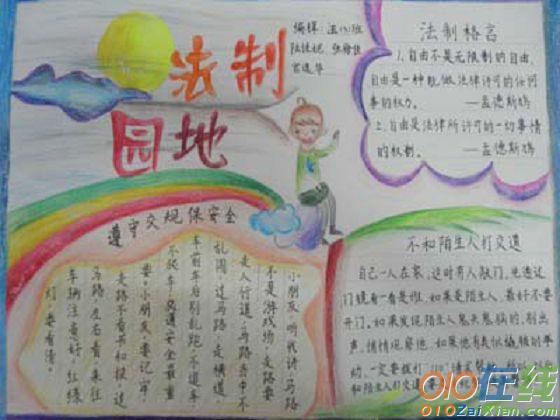 法制
园地
编辑:
法制格言
1.自由不是无限制的自由,
自由是一种能做法律许可的任何
事的权力。 ——孟德斯鸠
2.自由是法律所许可的一切事情
的权制。 ——孟德斯鸠
遵守交规保安全
小朋友,听我讲,马路
不是游戏场,走路要
走人行道,马路当中不
乱闯,过马路,走横道,
车前车后别乱跑,不追车
不爬车,交通安全最重
要。小朋友,要记牢,
走路不看书和报,过
马路,左右看,来往
车辆注意好,红绿
灯,要看清。
不和陌生人打交道
自己一人在家,这时有人敲门,先透过
门镜看一看是谁,如果是陌生人,最好不要
开门。如果发现陌生人鬼头鬼脑的,别出
声,悄悄观察他。如果他有类似撬锁的举
动,一定要拨打"110"请求帮助。
和陌生人打交道
010在线
010ZaiXian.com